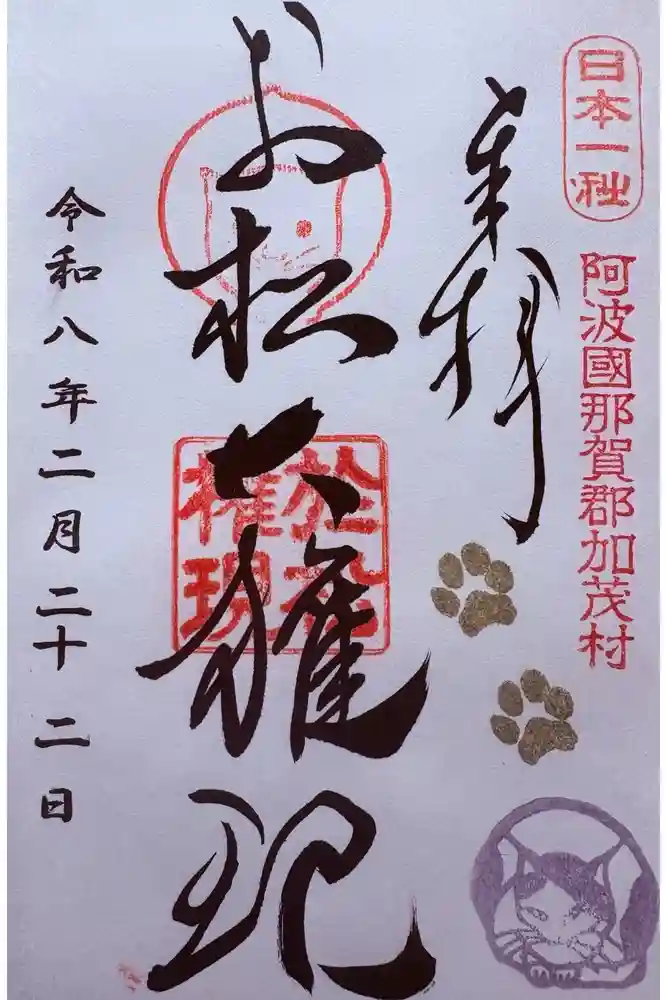 日本一社
阿波國那賀郡加茂村
奉拝
お松大権現
於松
権現
令和八年二月二十二日